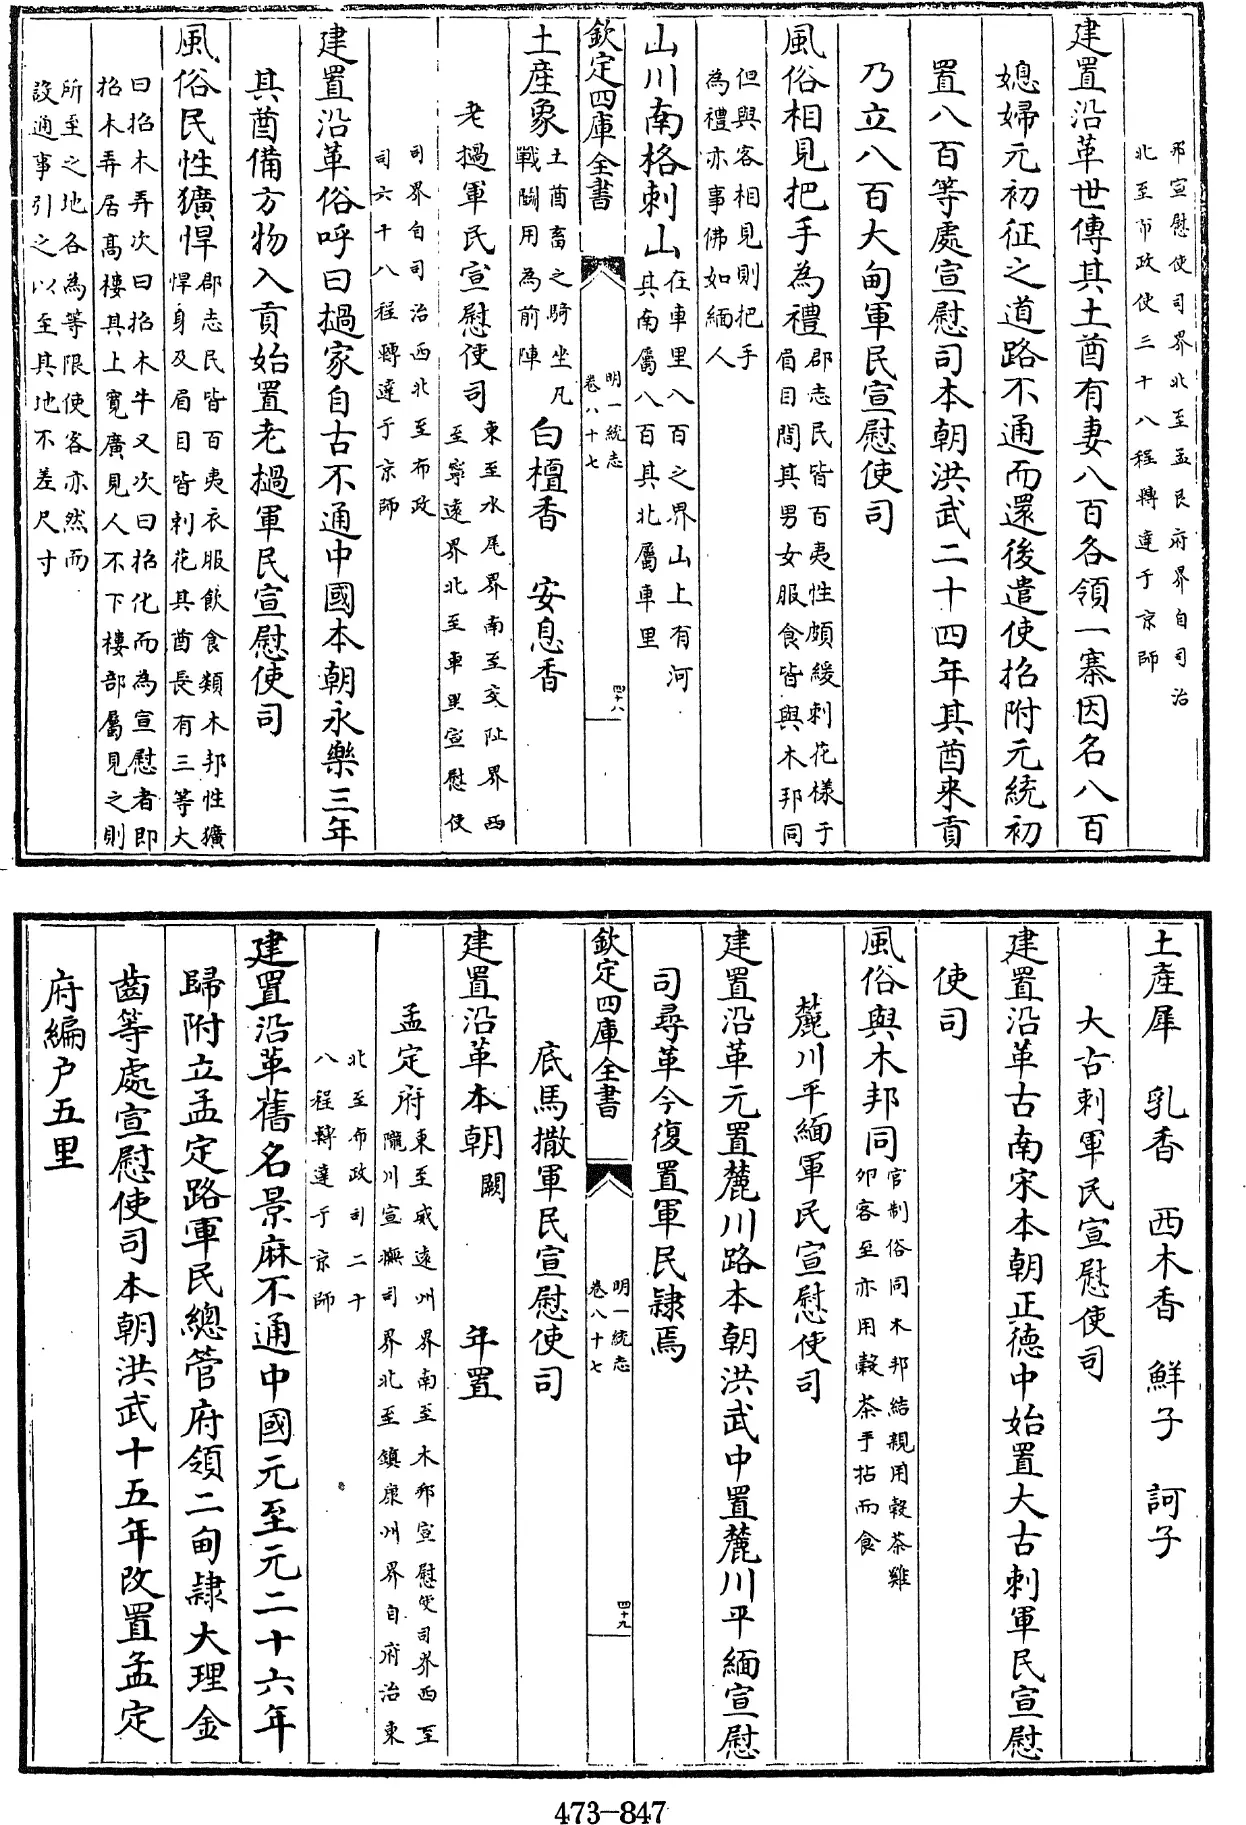 邦宣慰使司界北至孟艮府界自司治
北至布政使三十八程轉達于京師
建置沿革世傳其土酋有妻八百各領一寨因名八百
媳婦元初征之道路不通而還後遣使招附元統初
置八百等處宣慰司本朝洪武二十四年其酋來貢
乃立八百大甸軍民宣慰使司
風俗相見把手為禮郡志民皆百夷性頗緩刺花樣于
眉目間其男女服食皆與木邦同
但與客相見則把手
為禮亦事佛如緬人
山川南格刺山在車里八百之界山上有河
其南屬八百其北屬車里
欽定四庫全書
明一統志
卷八十七
四十八
土産象土酋畜之騎坐凡
戰鬭用為前陣 白檀香 安息香
老撾軍民宣慰使司東至水尾界南至交阯界西
至寧遠界北至車里宣慰使
司界自司治西北至布政
司六十八程轉達于京師
建置沿革俗呼曰撾家自古不通中國本朝永樂三年
其酋備方物入貢始置老撾軍民宣慰使司
風俗民性獷悍郡志民皆百夷衣服飲食類木邦性獷
悍身及眉目皆刺花其酋長有三等大
曰招木弄次曰招木牛又次曰招化而為宣慰者即
招木弄居高樓其上寬廣見人不下樓部屬見之則
所至之地各為等限使客亦然而
設通事引之以至其地不差尺寸
土産犀 乳香 西木香 鮮子 訶子
大古剌軍民宣慰使司
建置沿革古南宋本朝正德中始置大古剌軍民宣慰
使司
風俗與木邦同官制俗同木邦結親用穀茶雞
卵客至亦用穀茶手拈而食
麓川平緬軍民宣慰使司
建置沿革元置麓川路本朝洪武中置麓川平緬宣慰
司尋革今復置軍民隸焉
欽定四庫全書
明一統志
卷八十七
四十九
底馬撒軍民宣慰使司
建置沿革本朝闕 年置
孟定府東至威遠州界南至木邦宣慰使司界西至
隴川宣撫司界北至鎮康州界自府治東
北至布政司二十
八程轉達于京師
建置沿革舊名景麻不通中國元至元二十六年
歸附立孟定路軍民總管府領二甸隸大理金
齒等處宣慰使司本朝洪武十五年改置孟定
府編户五里
473-847